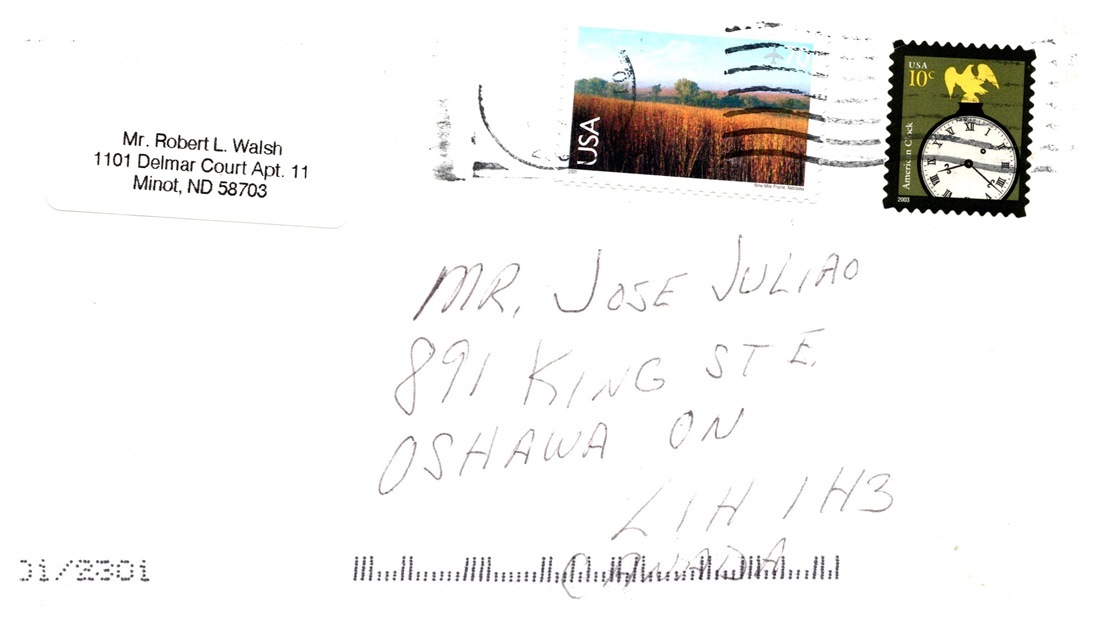 Mr. Robert L. Walsh
1101 Delmar Court Apt. 11
Minot, ND 58703
USA
70
Nine-Mile Prairie, Nebraska
2001
USA
10c
American Clock
2003
MR. JOSE JULIAO
891 KING ST E.
OSHAWA ON
L1H 1H3
CANADA